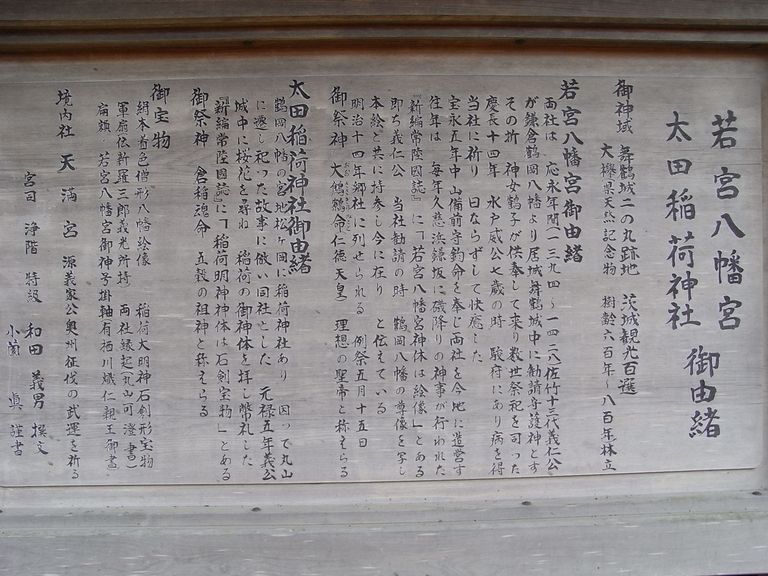 若宮八幡宮
太田稲荷神社 御由緒
御神域 舞鶴城二の丸跡地 茨城観光百選
大欅県天然記念物 樹齢六百年~八百年林立
若宮八幡宮御由緒
両社は 応永年間(一三九四~一四二八)佐竹十三代義仁公
が鎌倉鶴岡八幡より居城舞鶴城中に勧請守護神とす
その折 神女鶴子が供奉して来り数世祭祀を司った
慶長十四年 水戸威公七歳の時 駿府にあり病を得
当社に祈り 日ならずして快癒した
宝永五年中山備前守釣命を奉じ両社を今地に造営す
往年は 毎年久慈浜鎌坂に磯降りの神事が行われた
『新編常陸國誌』に「若宮八幡宮神体は絵像」とある
即ち義仁公 当社勧請の時 鶴岡八幡の尊像を写し
本絵と共に持参し今に在り と伝えている
明治十四年郷社に列せられる 例祭五月十五日
御祭神 大鷦鷯命仁徳天皇 理想の聖帝と称えらる
太田稲荷神社御由緒
鶴岡八幡の宮地松ヶ岡に稲荷神社あり 因って丸山
に遷し祀った故事に倣い同社とした 元禄五年義公
城中に桜花を尋ね 稲荷の御神体を拝し幣礼した
『新編常陸国誌』に「稲荷明神神体は石剣宝物」とある
御祭神 倉稲魂命 五穀の祖神と称えらる
御宝物
絹本着色僧形八幡絵像 稲荷大明神石剣形宝物
軍扇伝新羅三郎義光所持 両社縁起(丸山可澄書)
扁額・若宮八幡宮御神号掛軸有栖川織仁親王御書
境内社 天満宮 源義家公奥州征伐の武運を祈る
宮司 浄階 特級 和田 義男 撰文
小薗 眞 謹書